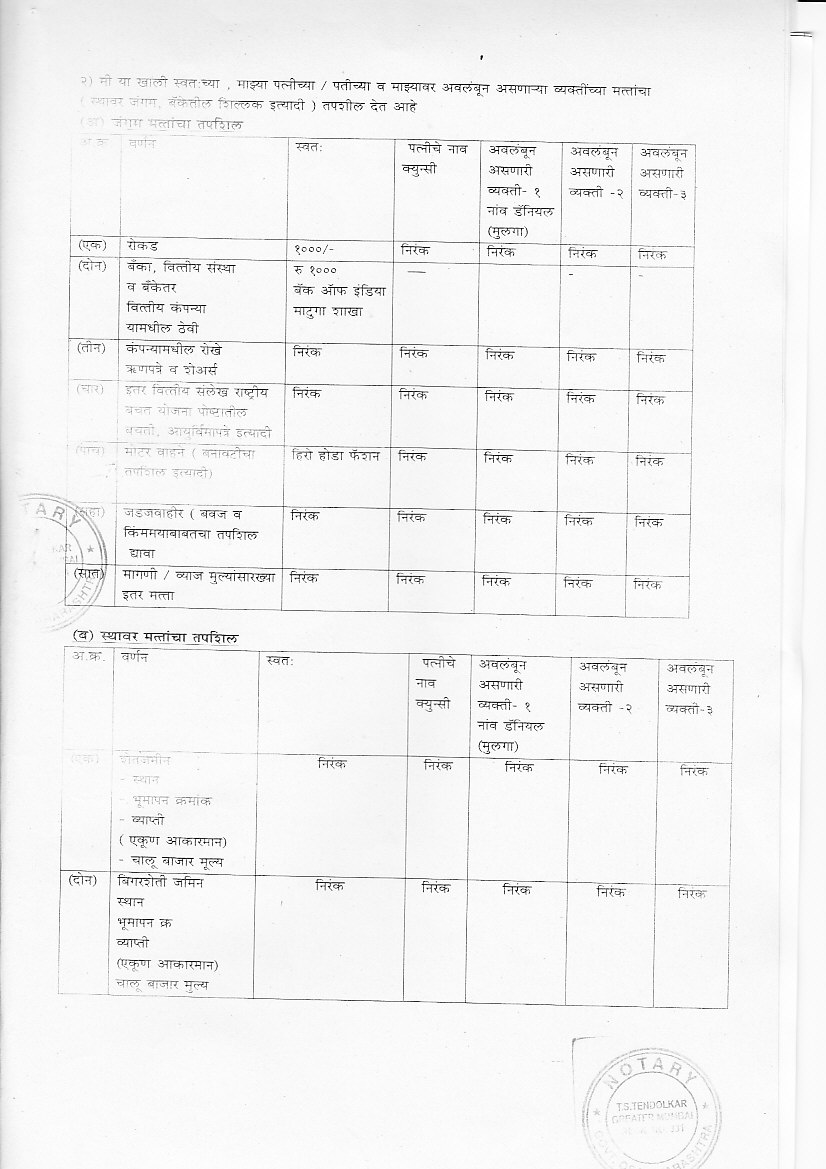 २) मी या खाली स्वतःच्या , माझ्या पत्नीच्या / पतीच्या व माझ्यावर अवलंबून असणाऱ्या व्यक्तींच्या मत्तांचा
( स्थावर जंगम, बँकेतील शिल्लक इत्यादी ) तपशील देत आहे
(अ) जंगम मत्तांचा तपशिल
अ.क्र वर्णन स्वतः पत्नीचे नाव अवलंबून अवलंबून अवलंबून
क्युन्सी असणारी असणारी असणारी
व्यक्ती- १ व्यक्ती -२ व्यक्ती-३
नांव डॅनियल
(मुलगा)
(एक) रोकड १०००/- निरंक निरंक निरंक निरंक
(दोन) बँका, वित्तीय संस्था रु १००० — - -
व बँकेतर बँक ऑफ इंडिया
वित्तीय कंपन्या माटुगा शाखा
यामधील ठेवी
(तीन) कंपन्यामधील रोखे निरंक निरंक निरंक निरंक निरंक
ऋणपत्रे व शेअर्स
(चार) इतर वित्तीय संलेख राष्ट्रीय निरंक निरंक निरंक निरंक निरंक
बचत योजना पोष्टातील
बचती, आयुर्विमापत्रे इत्यादी
(पाच) मोटर वाहने ( बनावटीचा हिरो होंडा फॅशन निरंक निरंक निरंक निरंक
तपशिल इत्यादी)
(सहा) जडजवाहीर ( बवज व निरंक निरंक निरंक निरंक निरंक
किंममयाबाबतचा तपशिल
द्यावा
(सात) मागणी / व्याज मुल्यांसारख्या निरंक निरंक निरंक निरंक निरंक
इतर मत्ता
(ब) स्थावर मत्तांचा तपशिल
अ.क्र. वर्णन स्वतः पत्नीचे अवलंबून अवलंबून अवलंबून
नाव असणारी असणारी असणारी
क्युन्सी व्यक्ती- १ व्यक्ती -२ व्यक्ती-३
नांव डॅनियल
(मुलगा)
(एक) शेतजमीन निरंक निरंक निरंक निरंक निरंक
- स्थान
- भूमापन क्रमांक
- व्याप्ती
( एकूण आकारमान)
- चालू बाजार मूल्य
(दोन) बिगरशेती जमिन निरंक निरंक निरंक निरंक निरंक
स्थान
भूमापन क्र
व्याप्ती
(एकूण आकारमान)
चालू बाजार मुल्य
NOTARY
NOTARY
T.S.TENDOLKAR
GREATER MUMBAI